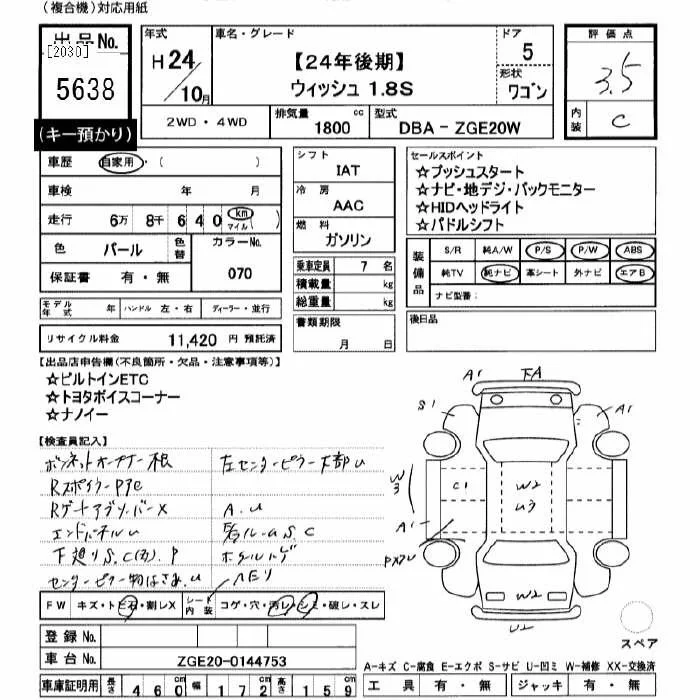 (複合機)対応用紙
出品No.
[2030]
5638
(キー預かり)
年式
H24/10月
車名・グレード
【24年後期】
ウィッシュ 1.8S
ドア
5
形状
ワゴン
評価点
3.5
内装
C
2WD・4WD
排気量
1800 cc
型式
DBA - ZGE20W
車歴 自家用・( )
車検 年 月
走行 6万 8千 6 4 0 km マイル ( )
色 パール 色替 カラーNo.
保証書 有・無 070
モデル年式 年 ハンドル 左・右 ディーラー・並行
リサイクル料金 11,420 円 預託済
シフト
IAT
冷房
AAC
燃料
ガソリン
乗車定員 7 名
積載量 kg
総重量 kg
書類期限
月 日
セールスポイント
☆プッシュスタート
☆ナビ・地デジ・バックモニター
☆HIDヘッドライト
☆パドルシフト
装備品
S/R 純A/W P/S P/W ABS
純TV 純ナビ 革シート 外ナビ エアB
ナビ型番:
後日品
【出品店申告欄(不良箇所・欠品・注意事項等)】
☆ビルトインETC
☆トヨタボイスコーナー
☆ナノイー
【検査員記入】
左センターピラー下部U
Rスポイラー
A.U
エンドパネルU
S.C
下廻りS.C
P
FW キズ・トビ石・割レX シート内装 コゲ・穴・汚レ・シミ・破レ・スレ
登録No.
車台No. ZGE20-0144753
車庫証明用 長さ 460 幅 172 高さ 159
A1
下A
S1
A1
W3
C1
W2
U3
A1
W2
U2
スペア
A-キズ C-腐食 E-エクボ S-サビ U-凹ミ W-補修 XX-交換済
工具 有・無 ジャッキ 有・無